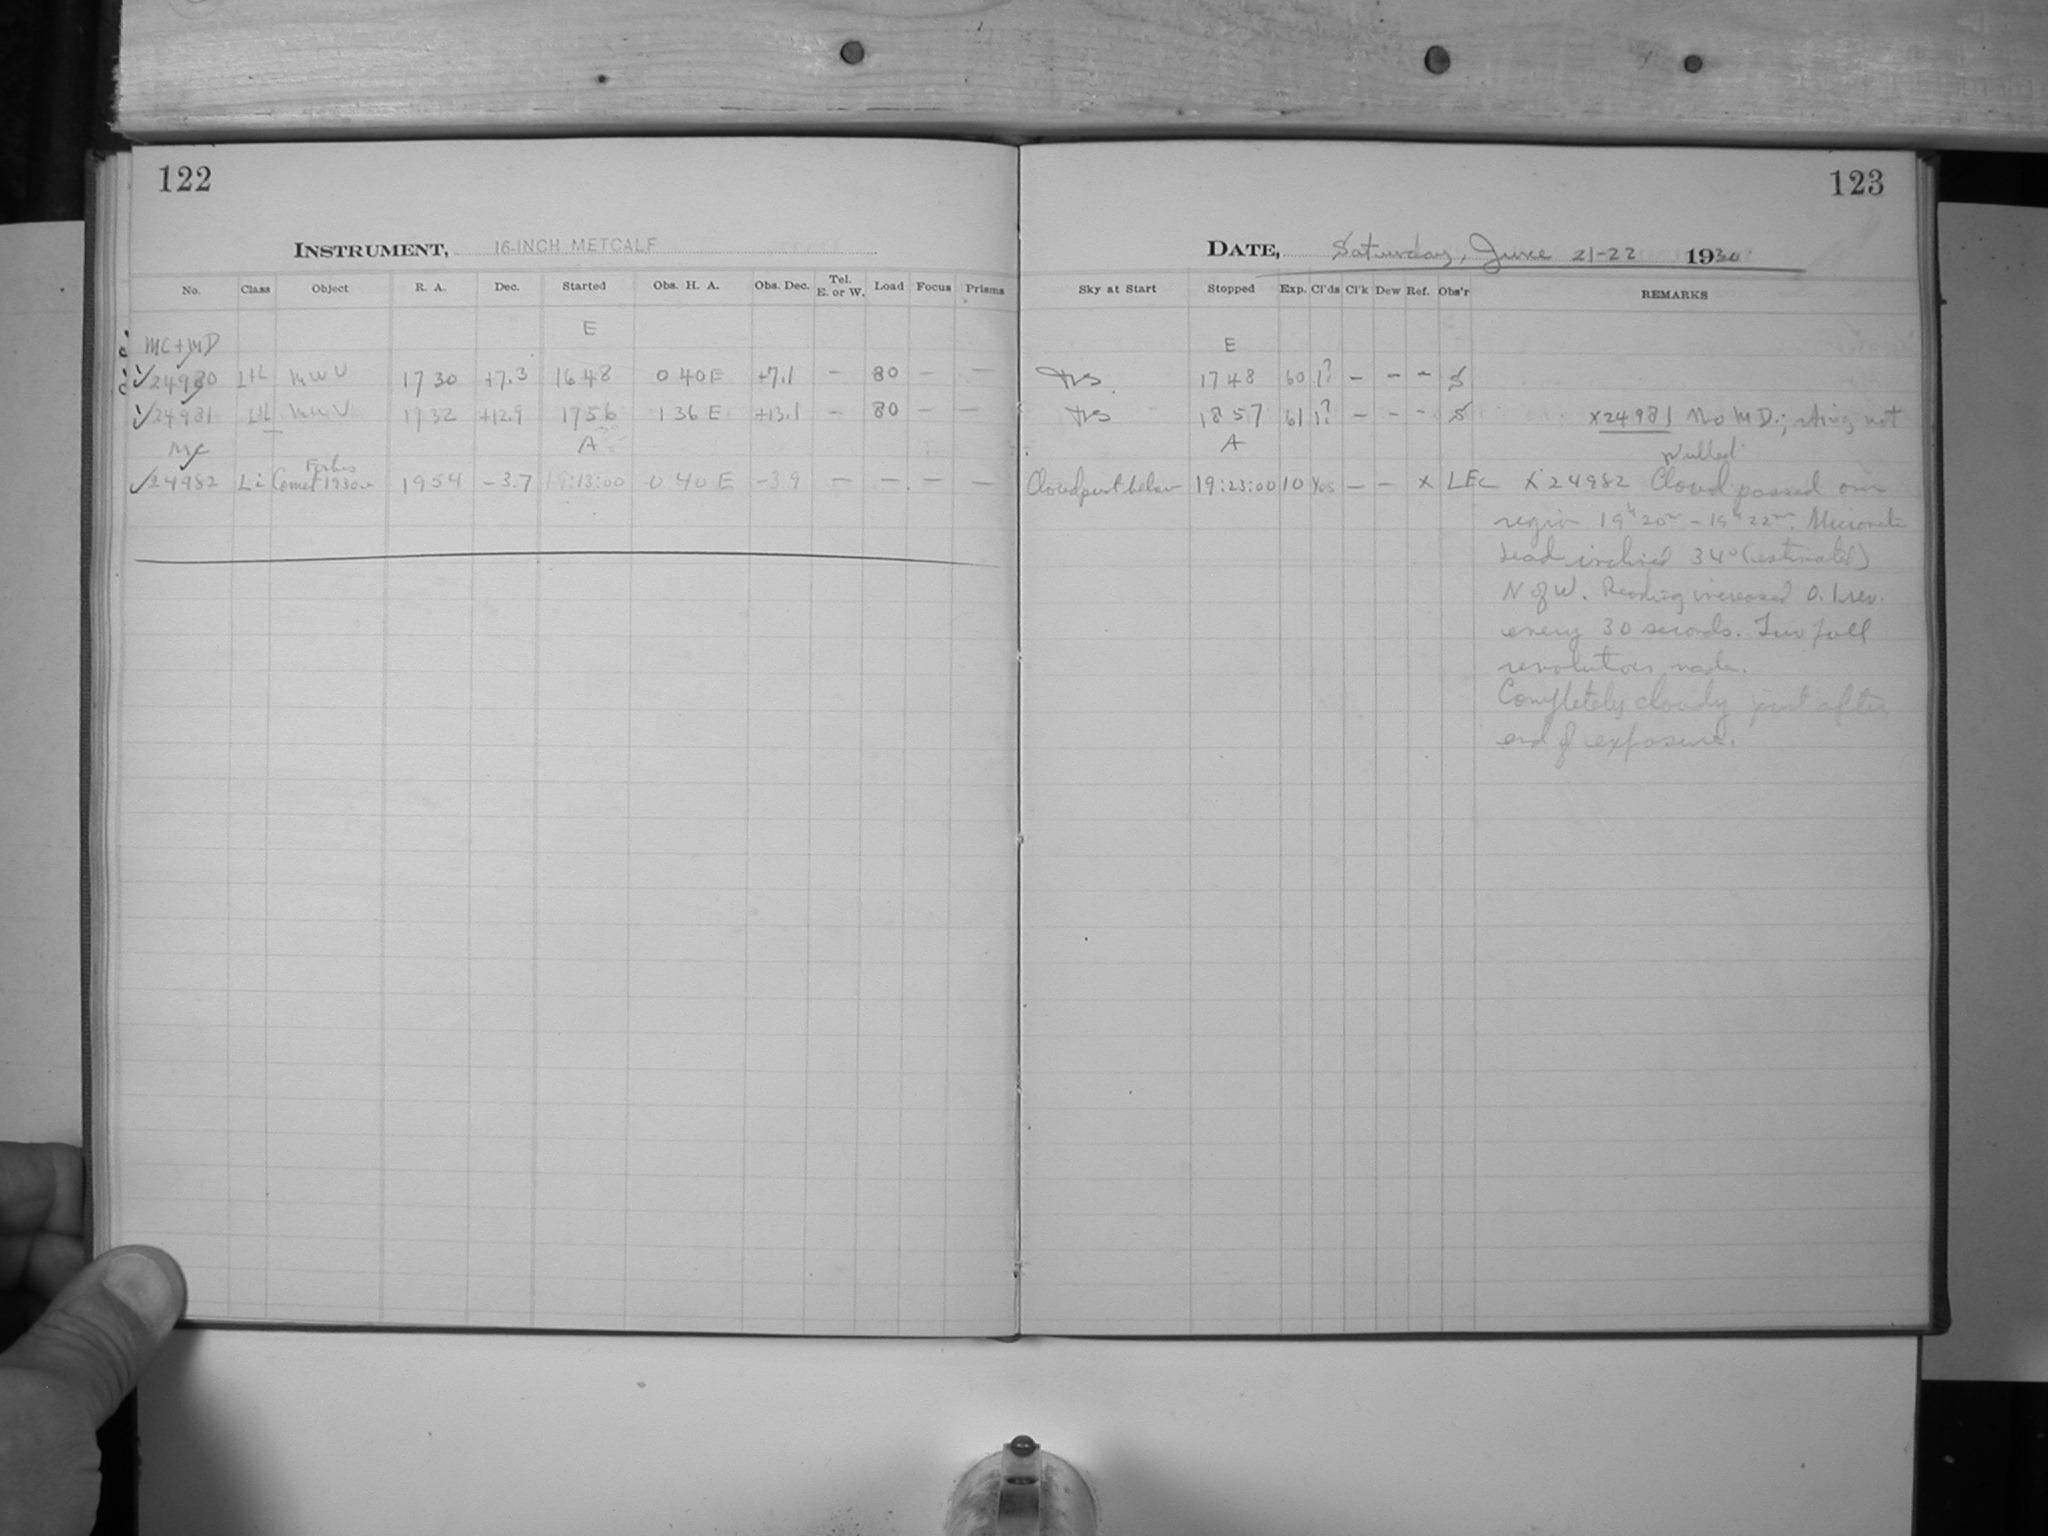 122
INSTRUMENT, 16-INCH METCALF
No. Class Object R. A. Dec. Started Obs. H. A. Obs. Dec. Tel. E. or W. Load Focus Prisms
E
MC + MD
24980 LtL MWV 17 30 +7.3 16 48 0 40 E +7.1 – 80 – –
24981 LtL MWV 19 32 +12.9 17 56 1 36 E +13.1 – 80 – –
MC A
24982 Li Comet Forbes 1930 19 54 -3.7 19:13:00 0 40 E -3.9 – – – –
123
DATE, Saturday, June 21-22 1930
Sky at Start Stopped Exp. Cl'ds Cl'k Dew Ref. Obs'r REMARKS
E
17 48 60 1? – – – S
18 57 61 1? – – – S x24981 No MD.; string not
A pulled
Cloud just below 19:23:00 10 Yes – – x LEC x 24982 Cloud passed over
region 19h 20m – 19h 22m. Micrometer
head inclined 34° (estimated)
N of W. Reading increased 0.1 rev.
every 30 seconds. Two full
revolutions made.
Completely cloudy just after
end of exposure.